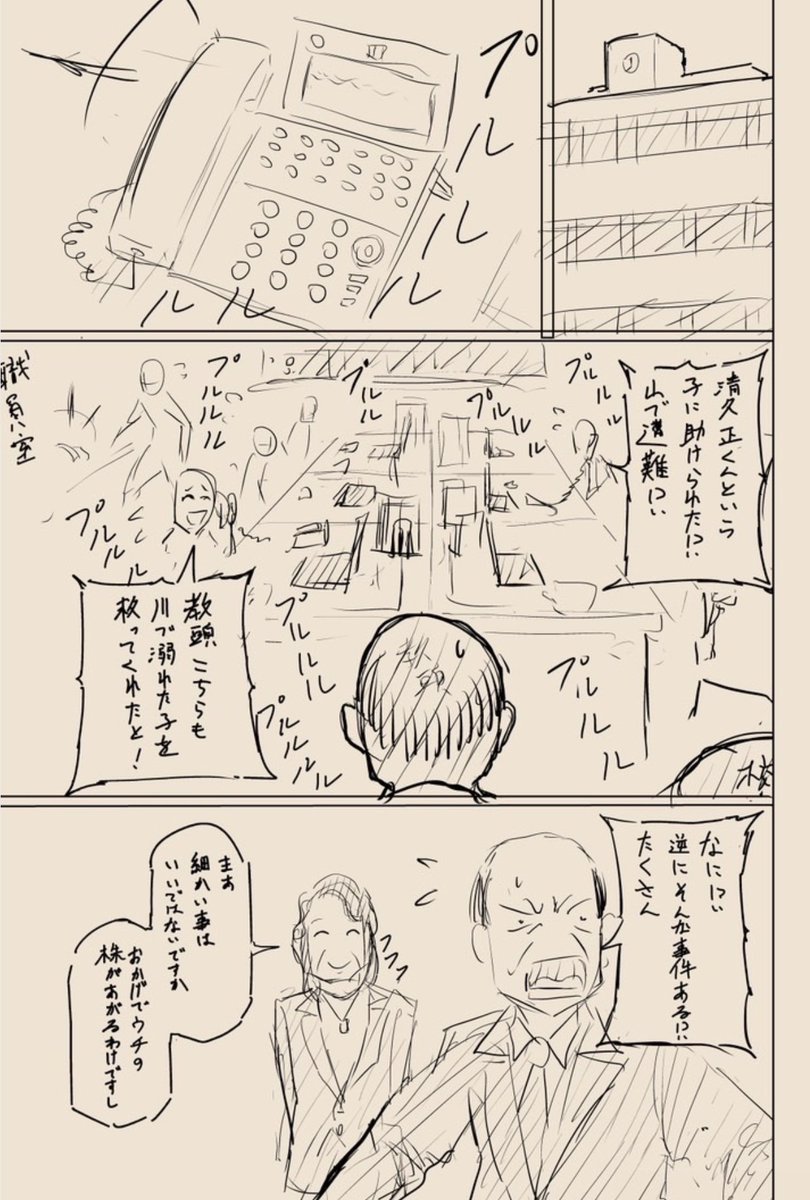 J
プルルルルルル
清久正くんという
子に助けられた!?
山で遭難!?
プルルル
プルルル
プルル
プルルル
職員室
プルルルル
教頭こちらも
川で溺れた子を
救ってくれたと!
プルルルル
プルルルル
プルルル
なに!?
逆にそんな事件ある!?
たくさん
フフフ
まあ
細かい事は
いいではないですか
おかげでウチの
株があがるわけですし